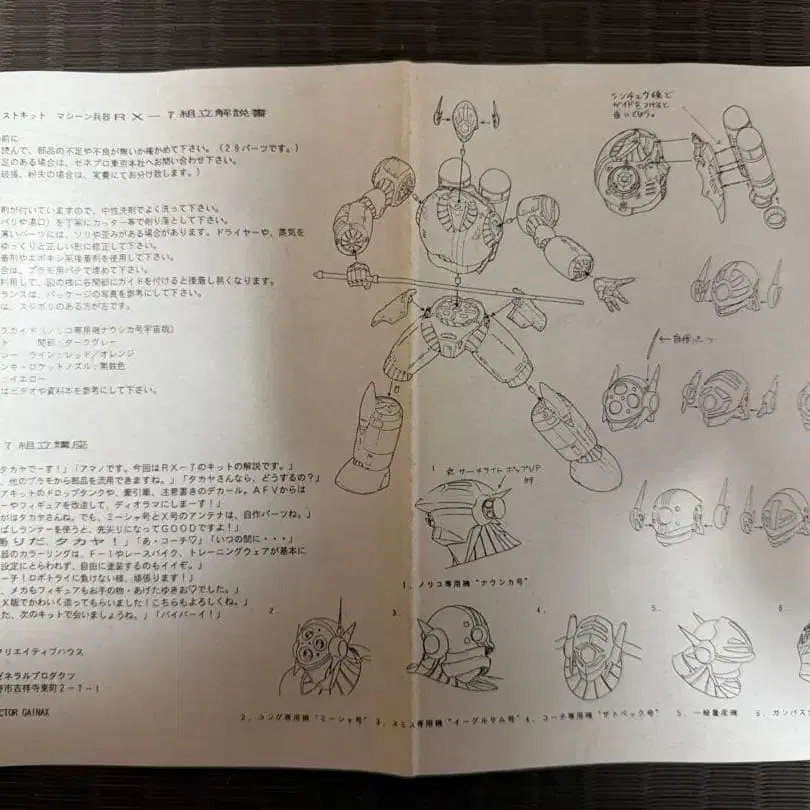 ストキット マシーン兵器RX-7組立解説書
前に
読んで、部品の不足や不良が無いか確かめて下さい。(29パーツです。)
足のある場合は、ゼネプロ東京本社へお問い合わせ下さい。
破損、紛失の場合は、実費にてお分け致します。)
剤が付いていますので、中性洗剤でよく洗って下さい。
バリや湯口)を丁寧にカッター等で削り落として下さい。
薄いパーツには、ソリや歪みがある場合があります。ドライヤーや、蒸気を
ゆっくりと正しい形に修正して下さい。
着剤やエポキシ系接着剤を使用して下さい。
合は、プラモ用パテで埋めて下さい。
利用して、図の様に各関節にガイドを付けると接着し易くなります。
ランスは、パッケージの写真を参考にして下さい。
は、スジボリのある方が左です。
ラガイド(ノリコ専用機ナウシカ号宇宙版)
ト 関節:ダークグレー
ライン:レッド/オレンジ
ンキ・ロケットノズル:黒鉄色
イエロー
はビデオや資料本を参考にして下さい。
7組立講座
タカヤでーす!」「アマノです。今回はRX-7のキットの解説です。」
、他のプラモから部品を流用できますね。」「タカヤさんなら、どうするの?」
アキットのドロップタンクや、牽引車、注意書きのデカール。AFVからは
ーやフィギュアを改造して、ディオラマにしまーす!」
がはタカヤさんね。でも、ミーシャ号とX号のアンテナは、自作パーツね。」
ばしランナーを使うと、先尖りになってGOODですよ!」
りだ、タカヤ!」「あ・コーチ♡」「いつの間に・・・」
器のカラーリングは、F-1やレースバイク、トレーニングウェアが基本に
設定にとらわれず、自由に塗装するのもイイぞ。」
ーチ!ロボトライに負けない様、頑張ります!」
、メカもフィギュアもお手の物・あげたゆきお♡でした。」
X版でかわいく造ってもらいました!こちらもよろしくね。」
た、次のキットで会いましょうね。」「バイバーイ!」
クリエイティブハウス
ゼネラルプロダクツ
野市吉祥寺東町2-7-1
CTOR GAINAX
シンチュウ線で
ガイドをつけると
良いでしょう。
1
サーチライト ポップUP
時
1. ノリコ専用機"ナウシカ号"
2.
3.
4.
5.
6.
2. ユング専用機"ミーシャ号"
3. スミス専用機"イーグルサム号"
4. コーチ専用機"ザトペック号"
5. 一般量産機
6. ガンバス